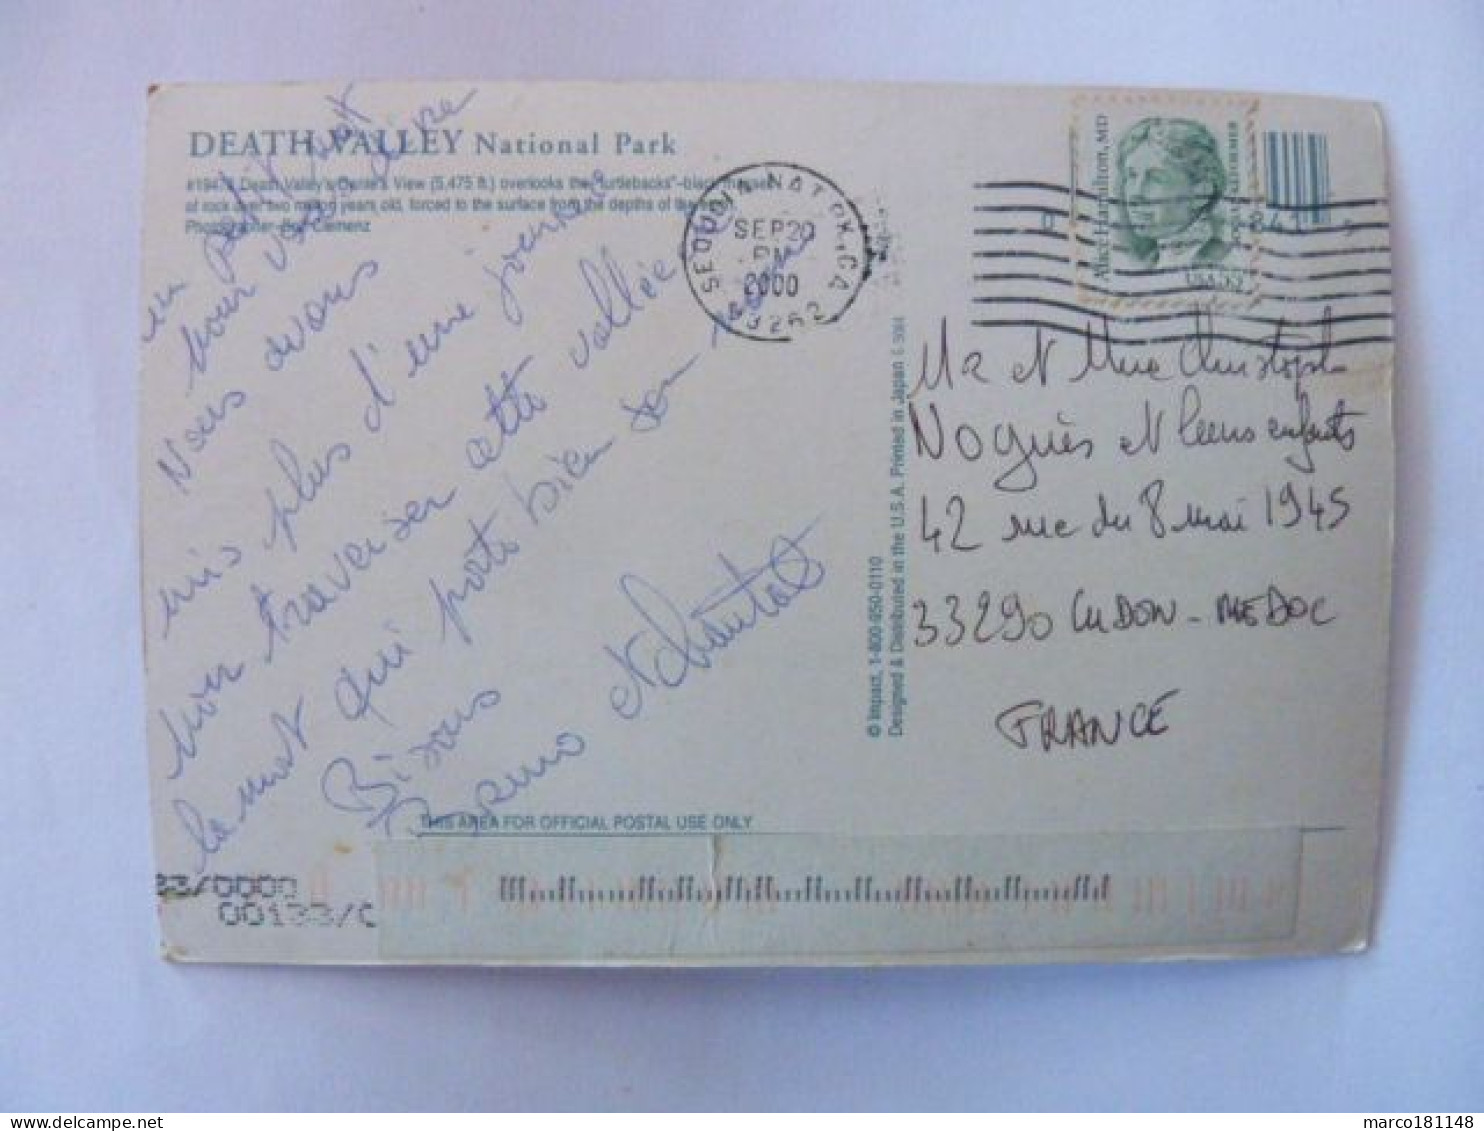 DEATH VALLEY National Park
Death Valley's Dante's View (5,475 ft.) overlooks the "turtlebacks"-black masses
of rock over two million years old, forced to the surface from the depths of the
Photographer Clemenz
un petit mot
pour vous dire
Nous avons
mis plus d'une journée
pour traverser cette vallée
la mort qui porte bien son nom
Bisous
Bruno et Chantal
SEQUOIA NAT PK. CA
SEP 20
PM
2000
93262
Alice Hamilton, MD
USA 55
Mr et Mme Christophe
Noguès et leurs enfants
42 rue du 8 mai 1945
33290 LUDON-MEDOC
FRANCE
© Impact, 1-800-950-0110
Designed & Distributed in the U.S.A. Printed in Japan
THIS AREA FOR OFFICIAL POSTAL USE ONLY
33/0000
00133/0
marco181148